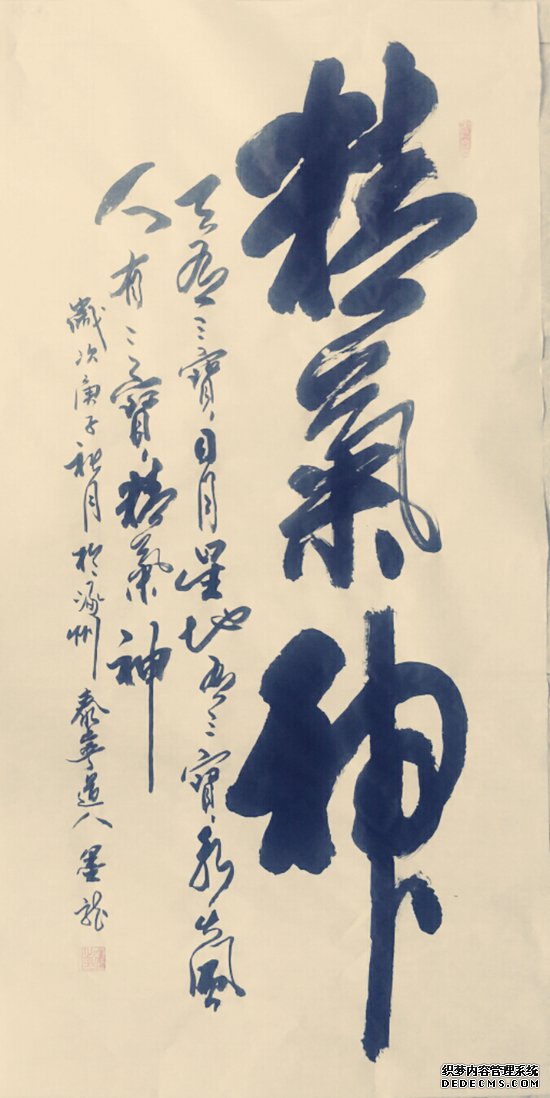 精氣神
天有三寶日月星地有三寶水火風
人有三寶精氣神
歲次庚子秋月於涿州泰寧道人墨龍
织梦内容管理系统
DEDECMS.COM